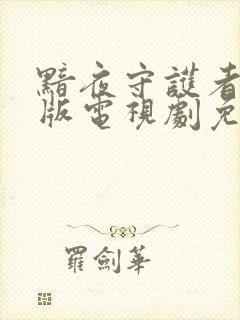 黯夜守護者
版電視劇免
羅劍華